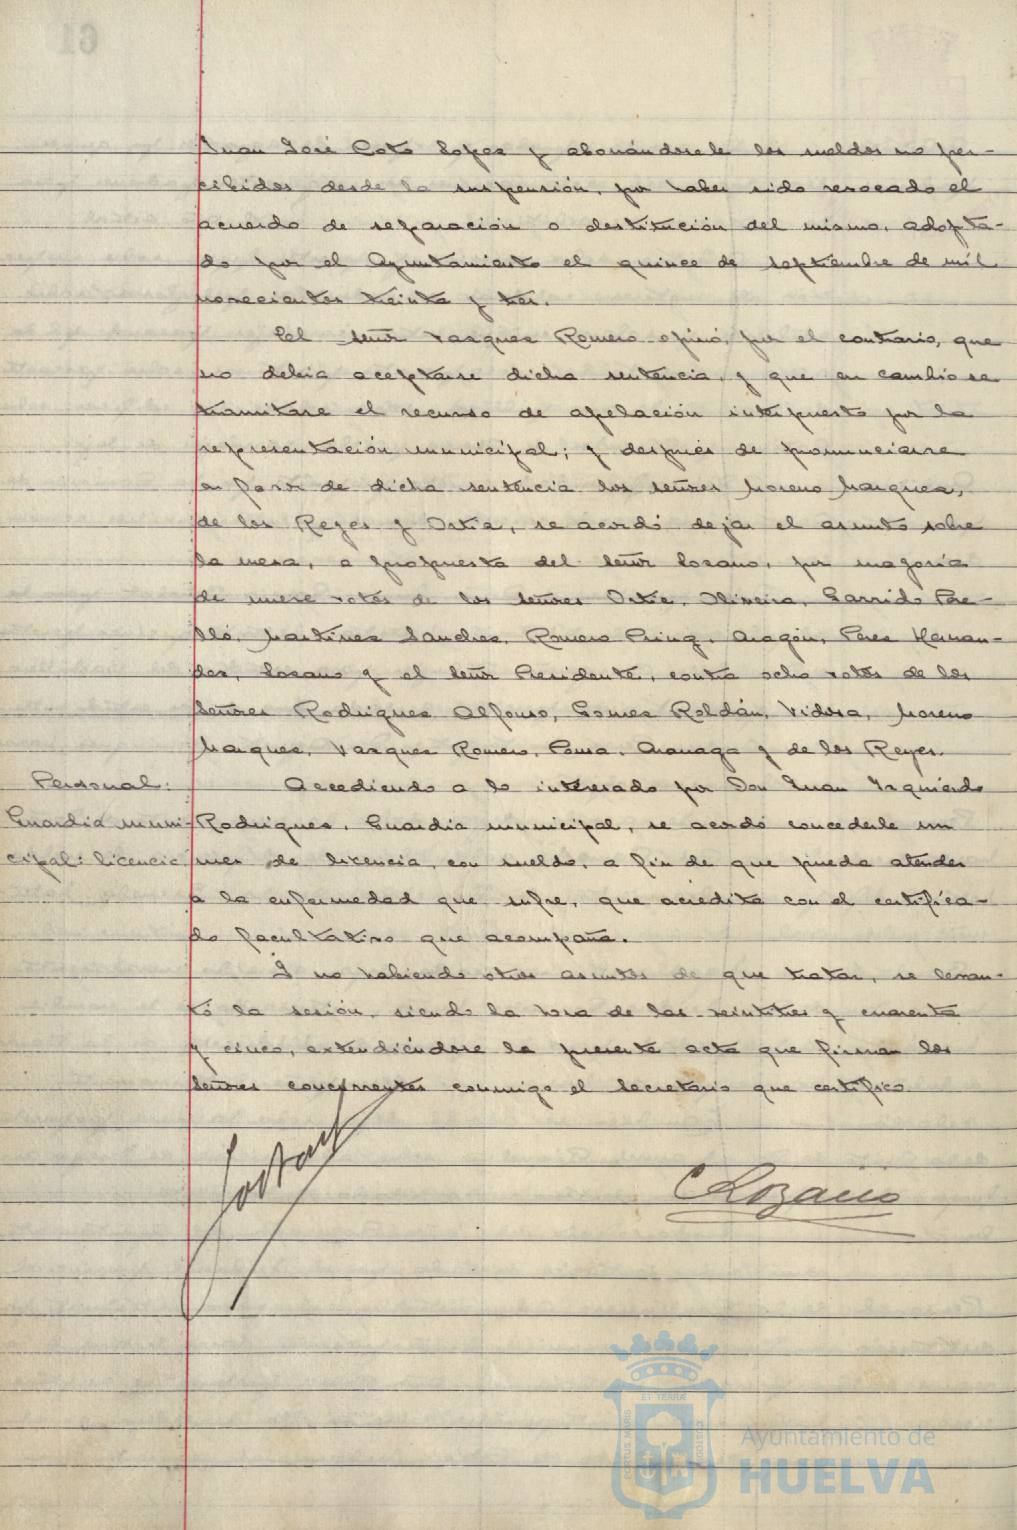 Juan José Coto Lopez y abonándosele los sueldos no per-
cibidos desde la suspensión, por haber sido revocado el
acuerdo de separación o destitución del mismo, adopta-
do por el Ayuntamiento el quince de septiembre de mil
novecientos treinta y tres.
El señor Vazquez Romero opinó, por el contrario, que
no debia aceptarse dicha sentencia, y que en cambio se
tramitase el recurso de apelación interpuesto por la
representación municipal; y después de pronunciarse
en favor de dicha sentencia los señores Moreno Marquez,
de los Reyes y Ortiz, se acordó dejar el asunto sobre
la mesa, a propuesta del señor Lozano, por mayoria
de nueve votos de los señores Ortiz, Oliveira, Garrido Pe-
lló, Martinez Sanchez, Romero Pring, Aragón, Perez Hernan-
dez, Lozano y el señor Presidente, contra ocho votos de los
señores Rodriguez Alfonso, Gomez Roldán, Vidosa, Moreno
Marquez, Vazquez Romero, Ponsa, Aranaga y de los Reyes.
Personal:
Guardia muni-
cipal: licencia
Accediendo a lo interesado por Don Juan Izquierdo
Rodriguez, Guardia municipal, se acordó concederle un
mes de licencia, con sueldo, a fin de que pueda atender
a la enfermedad que sufre, que acredita con el certifica-
do facultativo que acompaña.
Y no habiendo otros asuntos de que tratar, se levan-
tó la sesión, siendo la hora de las veintitres y cuarenta
y cinco, extendiéndose la presente acta que firman los
señores concurrentes conmigo el Secretario que certifico.
Lozano
PORTUS MARIS
ET TERRÆ
CUSTODIA
Ayuntamiento de
HUELVA
61